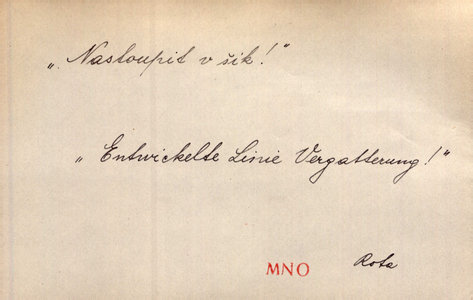 „Nastoupit v šik!"
„Entwickelte Linie Vergatterung!"
MNO Rota